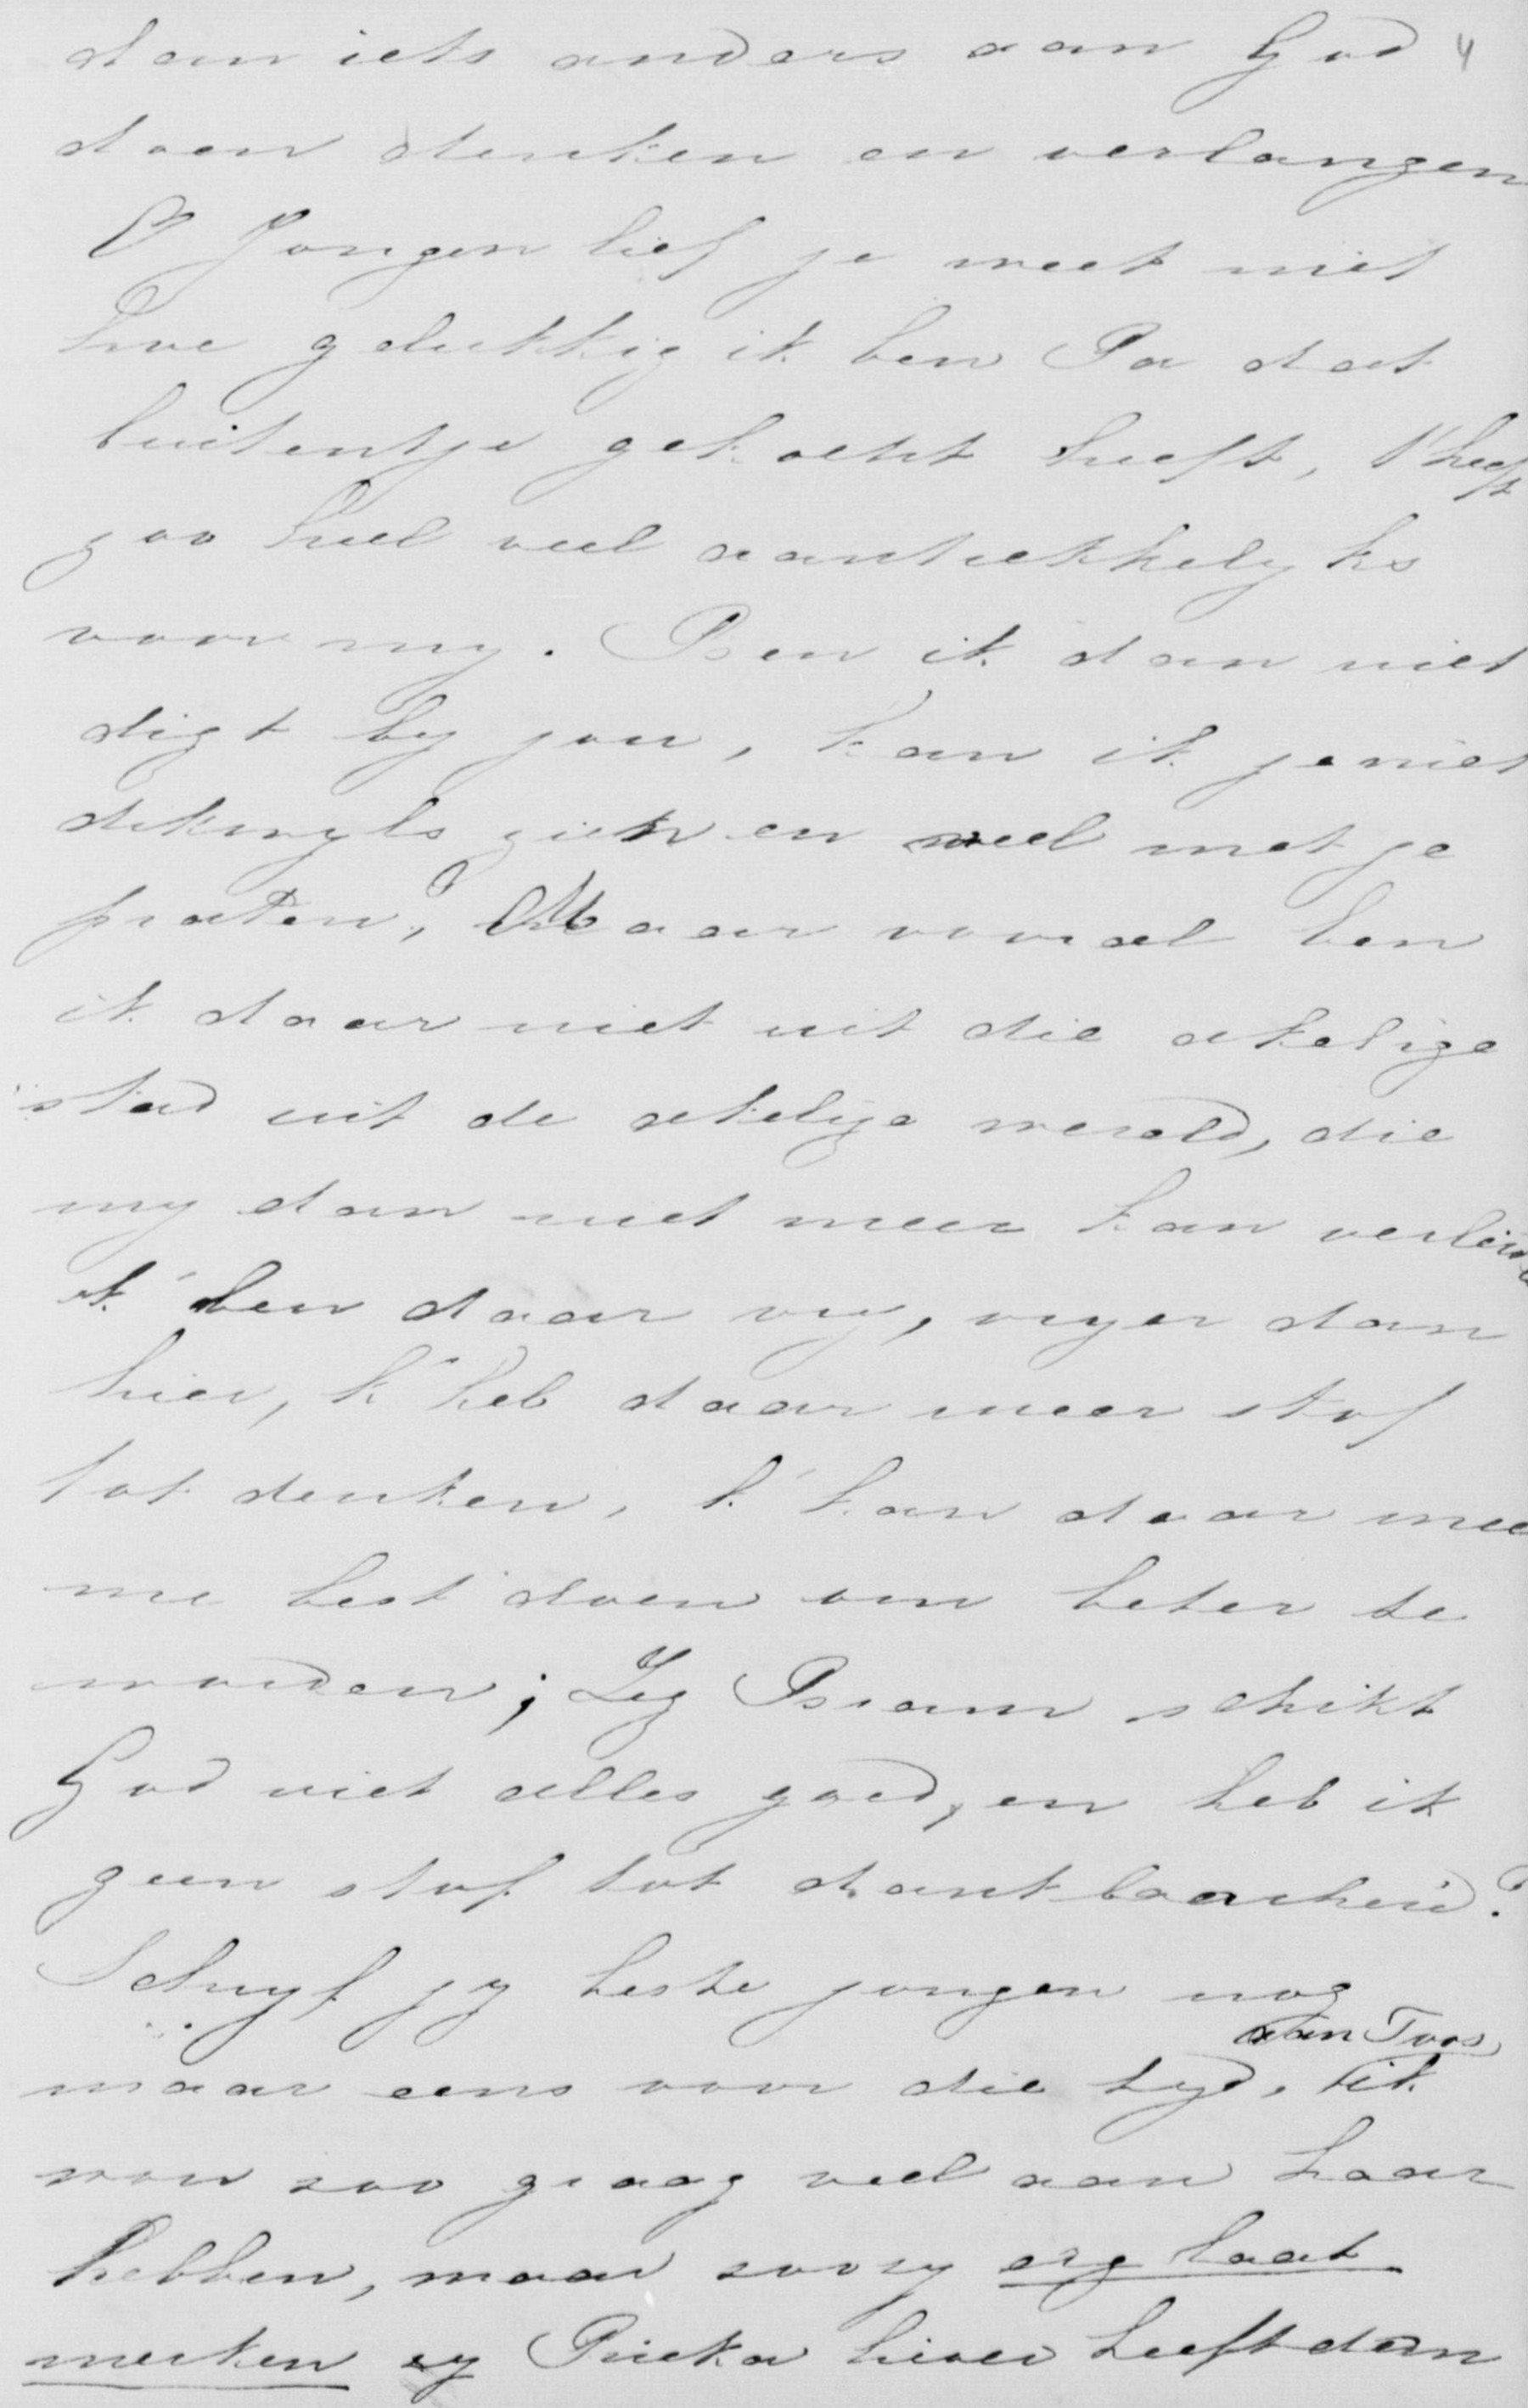 dan iets anders aan God 4
doen denken en verlangen
O Jongen lief je weet niet
hoe gelukkig ik ben Pa dat
buitentje gekocht heeft, 't heeft
zoo heel veel aantrekkelyks
voor my. Ben ik dan niet
digt by jou, kan ik je niet
dikwyls zien en veel met je
praten? Maar vooral ben
ik daar niet uit die akelige
stad uit de akelige wereld, die
my dan niet meer kan
k' ben daar vry, vryer dan
hier, k' heb daar meer stof
tot denken, k' kan daar mee
me best doen om beter te
worden; Zeg Bram schikt
God niet alles goed, en heb ik
geen stof tot dankbaarheid?
Schryf jy beste jongen nog
aan Toos
maar eens voor die tyd, ik
wou zoo graag veel aan haar
hebben, maar zoo zy erg laat
merken zy Rieka liever heeft dan